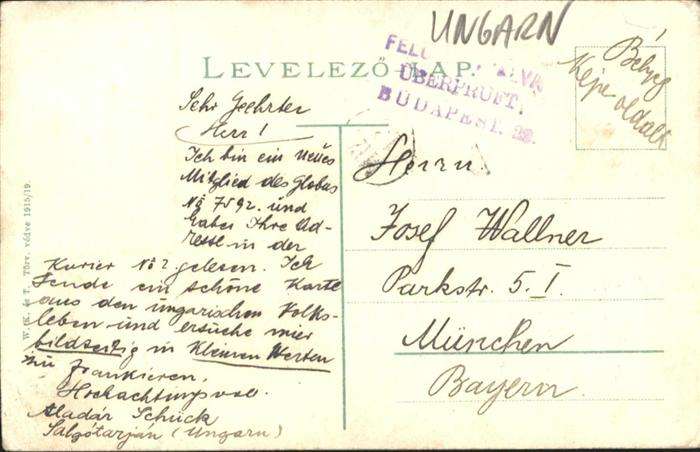 UNGARN
LEVELEZŐ-LAP.
ÜBERPRÜFT.
BUDAPEST. 22.
Bélyeg
képe oldalt
Sehr Geehrter
Herr!
Ich bin ein neues
Mitglied des Globus
No 7592. und
habe Ihre Ad-
resse in der
Kurier No 2 gelesen. Ich
sende ein schöne Karte
aus den ungarischen Volks-
leben und ersuche mier
bildseitig in kleinen Werten
zu frankieren.
Hochachtungsvoll
Aladár Schück
Salgótarján (Ungarn)
Herrn
Josef Wallner
Parkstr. 5. I.
München
Bayern.
W. K. és T. Törv. védve 1915/19.